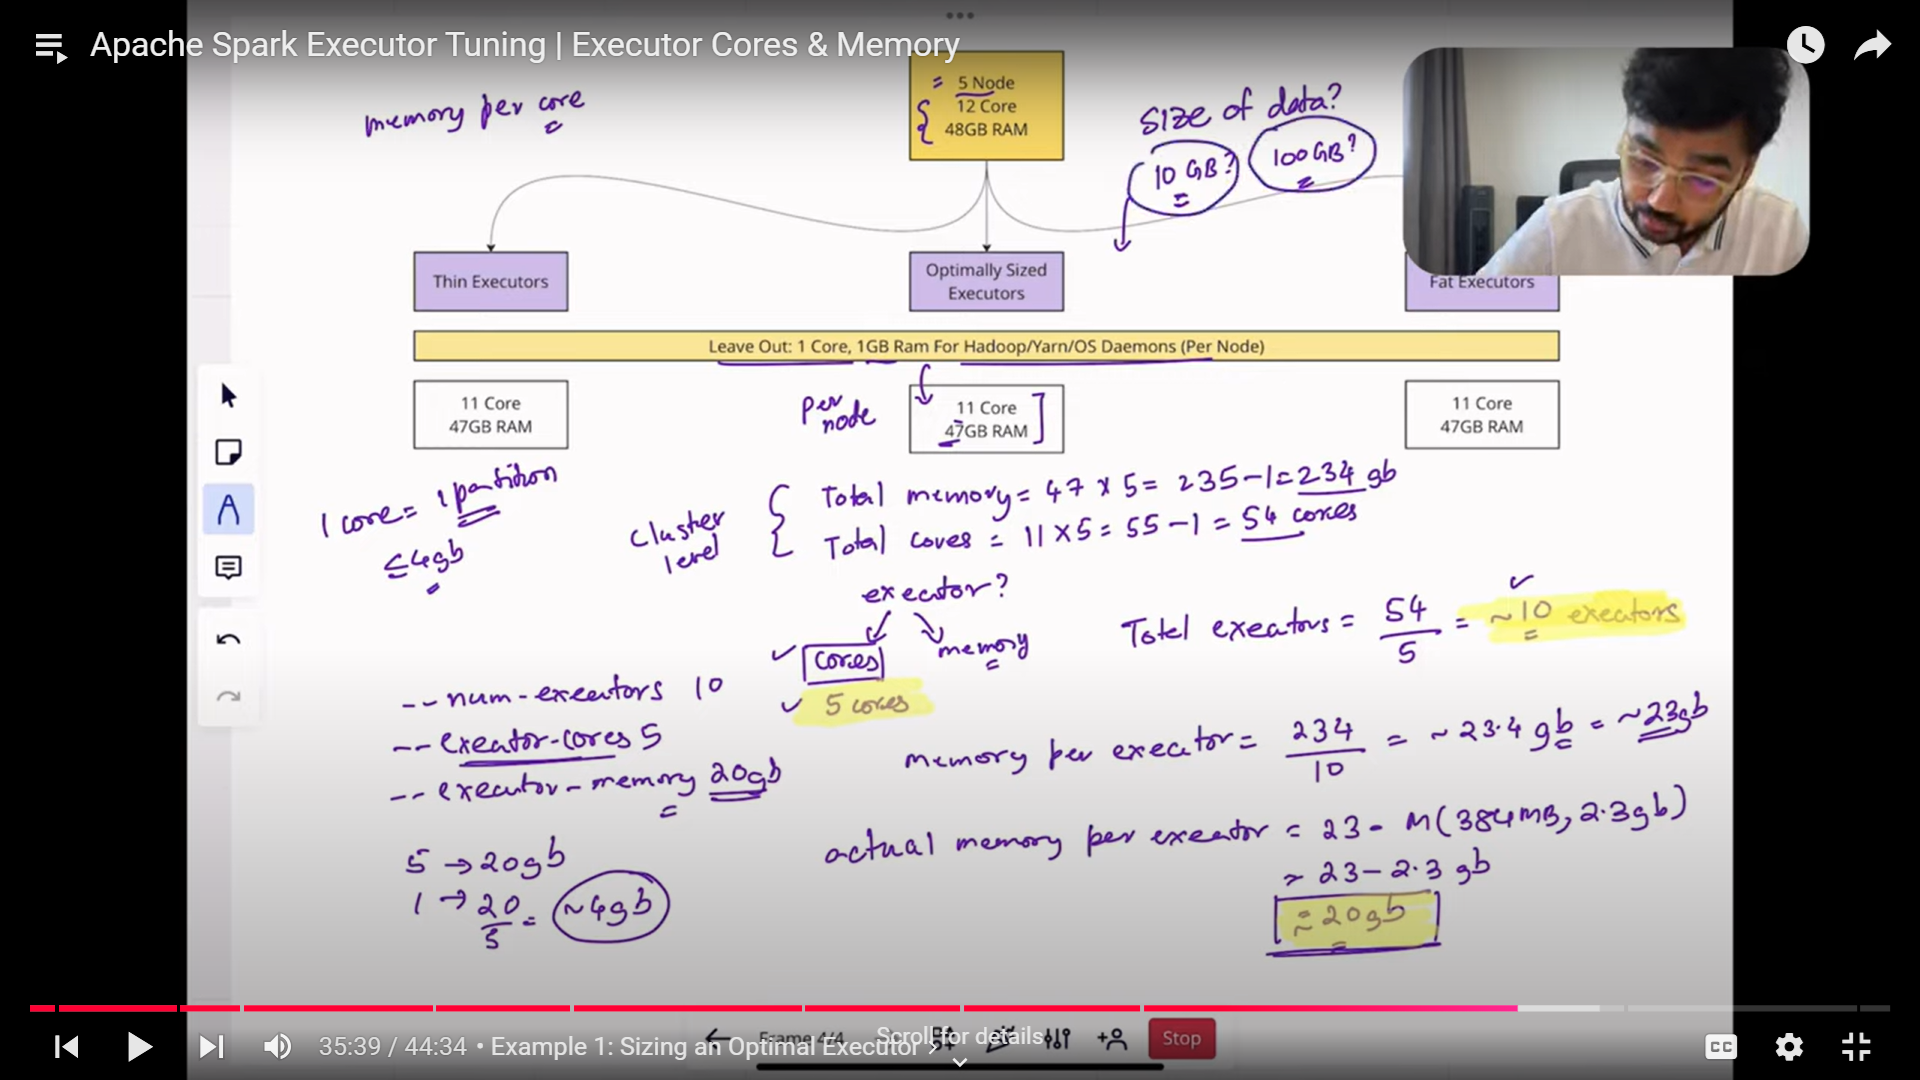 Apache Spark Executor Tuning | Executor Cores & Memory
memory per core
= 5 Node
12 Core
48GB RAM
size of data?
10 GB?
100GB?
Thin Executors
Optimally Sized
Executors
Fat Executors
Leave Out: 1 Core, 1GB Ram For Hadoop/Yarn/OS Daemons (Per Node)
11 Core
47GB RAM
Per
node
11 Core
47GB RAM
11 Core
47GB RAM
1 core = 1 partition
≤4gb
Cluster
level
Total memory = 47 x 5 = 235-1 = 234 gb
Total cores = 11 x 5 = 55 - 1 = 54 cores
executor?
cores
memory
5 cores
Total executors = 54/5 = ~10 executors
-- num-executors 10
-- executor-cores 5
-- executor-memory 20gb
memory per executor = 234/10 = ~23.4 gb = ~23gb
actual memory per executor = 23 - M(384MB, 2.3gb)
≈ 23 - 2.3 gb
≈ 20gb
5 → 20gb
1 → 20/5 = ~4gb
35:39 / 44:34 • Example 1: Sizing an Optimal Executor >
Frame 4/4
Scroll for details
Stop
CC